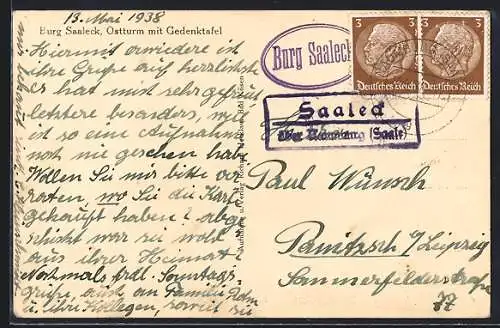 13. Mai 1938
Burg Saaleck, Ostturm mit Gedenktafel
Hiermit erwiedere ich
ihre Grüße auf herzlichste
es hat mich sehr gefreut
letztere besonders, weil
ist so eine Aufnahme
noch nie gesehen habe
Wollen Sie mir bitte ver-
raten, wo Sie die Karte
gekauft haben? abge-
schickt war sie wohl
aus ihrer Heimat?
Nochmals frdl. Sonntags-
grüße, auch an Familie
u. ihre Kollegen, soweit sie
Burg Saaleck
3 3
Deutsches Reich Deutsches Reich
Saaleck
über Naumburg (Saale)
Paul Wünsch
Panitzsch b/Leipzig
Sommerfelderstraße
77